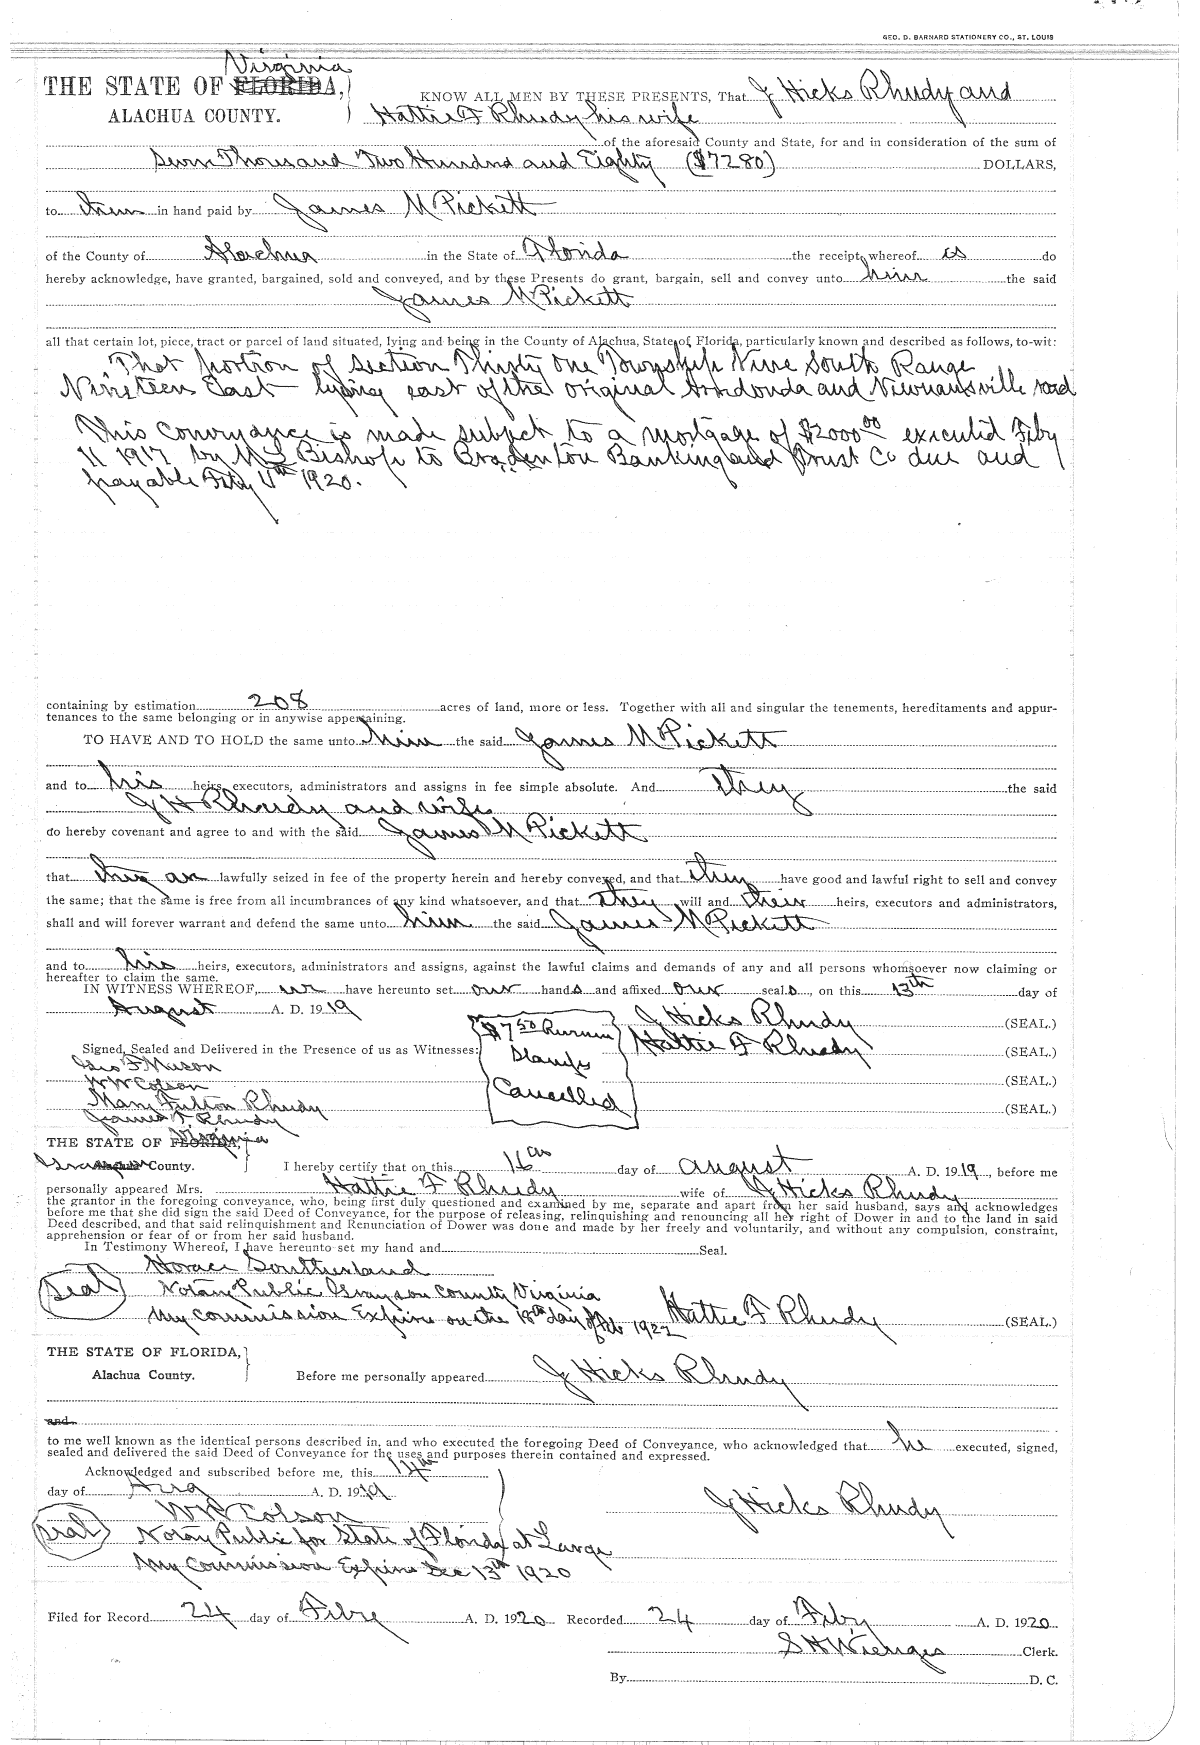 GEO. D. BARNARD STATIONERY CO., ST. LOUIS
Virginia
THE STATE OF FLORIDA,
ALACHUA COUNTY.
KNOW ALL MEN BY THESE PRESENTS, That J Hicks Rhudy and
Hattie F Rhudy his wife
of the aforesaid County and State, for and in consideration of the sum of
Seven Thousand Two Hundred and Eighty ($7280) DOLLARS,
to them in hand paid by James M Pickett
of the County of Alachua in the State of Florida the receipt whereof is do
hereby acknowledge, have granted, bargained, sold and conveyed, and by these Presents do grant, bargain, sell and convey unto him the said
James M Pickett
all that certain lot, piece, tract or parcel of land situated, lying and being in the County of Alachua, State of Florida, particularly known and described as follows, to-wit:
That portion of Section Thirty One Township Nine South Range
Nineteen East lying east of the original and Newnansville road
This Conveyance is made subject to a mortgage of $2000.00 executed Feby
11 1917 by Bishop to Bradenton Banking and Trust Co due and
payable Feby 11th 1920.
containing by estimation 208 acres of land, more or less. Together with all and singular the tenements, hereditaments and appur-
tenances to the same belonging or in anywise appertaining.
TO HAVE AND TO HOLD the same unto him the said James M Pickett
and to his heirs, executors, administrators and assigns in fee simple absolute. And they the said
J H Rhudy and wife
do hereby covenant and agree to and with the said James M Pickett
that they are lawfully seized in fee of the property herein and hereby conveyed, and that they have good and lawful right to sell and convey
the same; that the same is free from all incumbrances of any kind whatsoever, and that they will and their heirs, executors and administrators,
shall and will forever warrant and defend the same unto him the said James M Pickett
and to his heirs, executors, administrators and assigns, against the lawful claims and demands of any and all persons whomsoever now claiming or
hereafter to claim the same.
IN WITNESS WHEREOF, we have hereunto set our hands and affixed our seals, on this 13th day of
August A. D. 1919
J Hicks Rhudy (SEAL.)
$7.50 Revenue
Stamps
Cancelled
Hattie F Rhudy (SEAL.)
Signed, Sealed and Delivered in the Presence of us as Witnesses:
Geo F Muson
W W Colson (SEAL.)
Mary Fulton Rhudy (SEAL.)
James F. Rhudy
Virginia
THE STATE OF FLORIDA,
Grayson Alachua County.
I hereby certify that on this 16th day of August A. D. 1919, before me
personally appeared Mrs. Hattie F Rhudy wife of J Hicks Rhudy
the grantor in the foregoing conveyance, who, being first duly questioned and examined by me, separate and apart from her said husband, says and acknowledges
before me that she did sign the said Deed of Conveyance, for the purpose of releasing, relinquishing and renouncing all her right of Dower in and to the land in said
Deed described, and that said relinquishment and Renunciation of Dower was done and made by her freely and voluntarily, and without any compulsion, constraint,
apprehension or fear of or from her said husband.
In Testimony Whereof, I have hereunto set my hand and Seal.
Horace Southerland
Seal
Notary Public Grayson County Virginia
My commission Expires on the 18th day of Feb 1922
Hattie F Rhudy (SEAL.)
THE STATE OF FLORIDA,
Alachua County.
Before me personally appeared J Hicks Rhudy
and
to me well known as the identical persons described in, and who executed the foregoing Deed of Conveyance, who acknowledged that he executed, signed,
sealed and delivered the said Deed of Conveyance for the uses and purposes therein contained and expressed.
Acknowledged and subscribed before me, this 14th
day of Aug A. D. 1919
J Hicks Rhudy
W W Colson
Seal
Notary Public for State of Florida at Large
My Commission Expires Dec 13th 1920
Filed for Record 24 day of Feby A. D. 1920 Recorded 24 day of Feby A. D. 1920
S H Wienges Clerk.
By D. C.